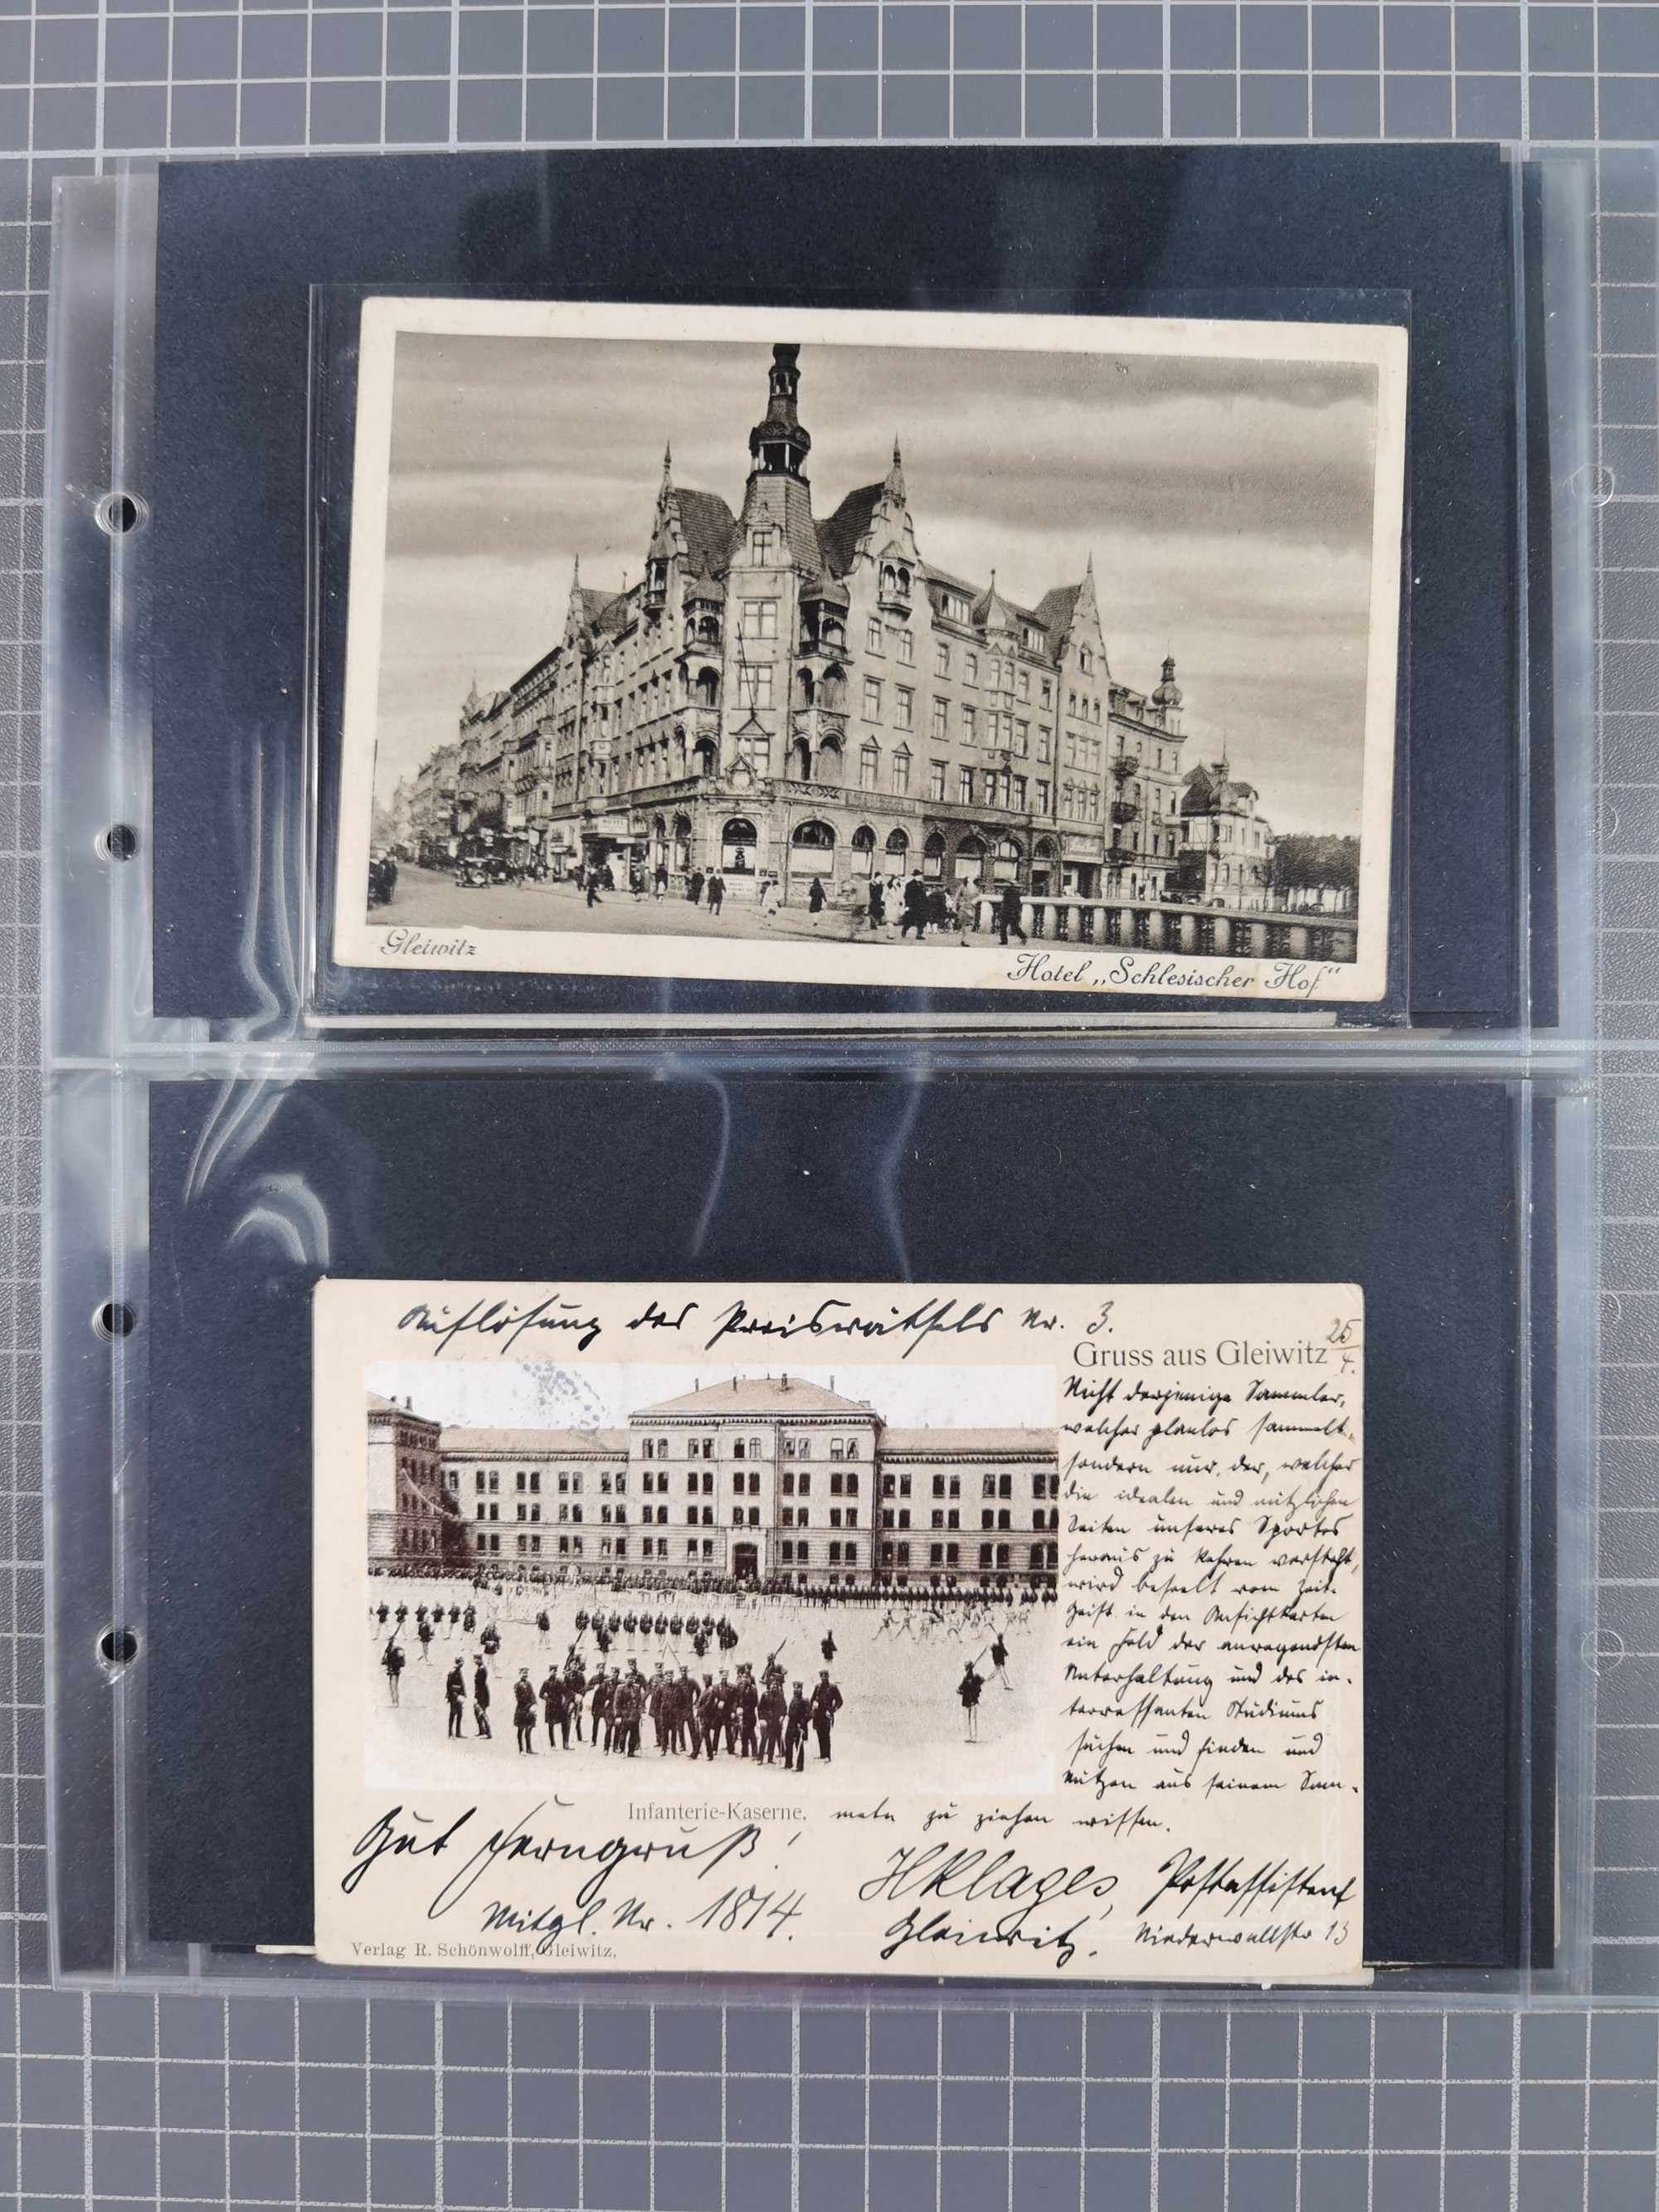 HOTEL
Gleiwitz
Hotel „Schlesischer Hof“
Auflösung des Preisrätsels Nr. 3.
Gruss aus Gleiwitz
25/4.
Nicht derjenige Sammler,
welcher planlos sammelt,
sondern nur der, welcher
die idealen und nützlichen
Seiten unseres Sportes
heraus zu kehren versteht,
wird beseelt vom Zeit-
geist in den Ansichtkarten
ein Feld der anregendsten
Unterhaltung und des in-
teressanten Studiums
suchen und finden und
Nutzen aus seinem Sam-
Infanterie-Kaserne.
meln zu ziehen wissen.
Gut Ferngruß!
HKlages, Postassistent
Mitgl. Nr. 1814.
Gleiwitz, Niederwallstr 13
Verlag R. Schönwolff, Gleiwitz.